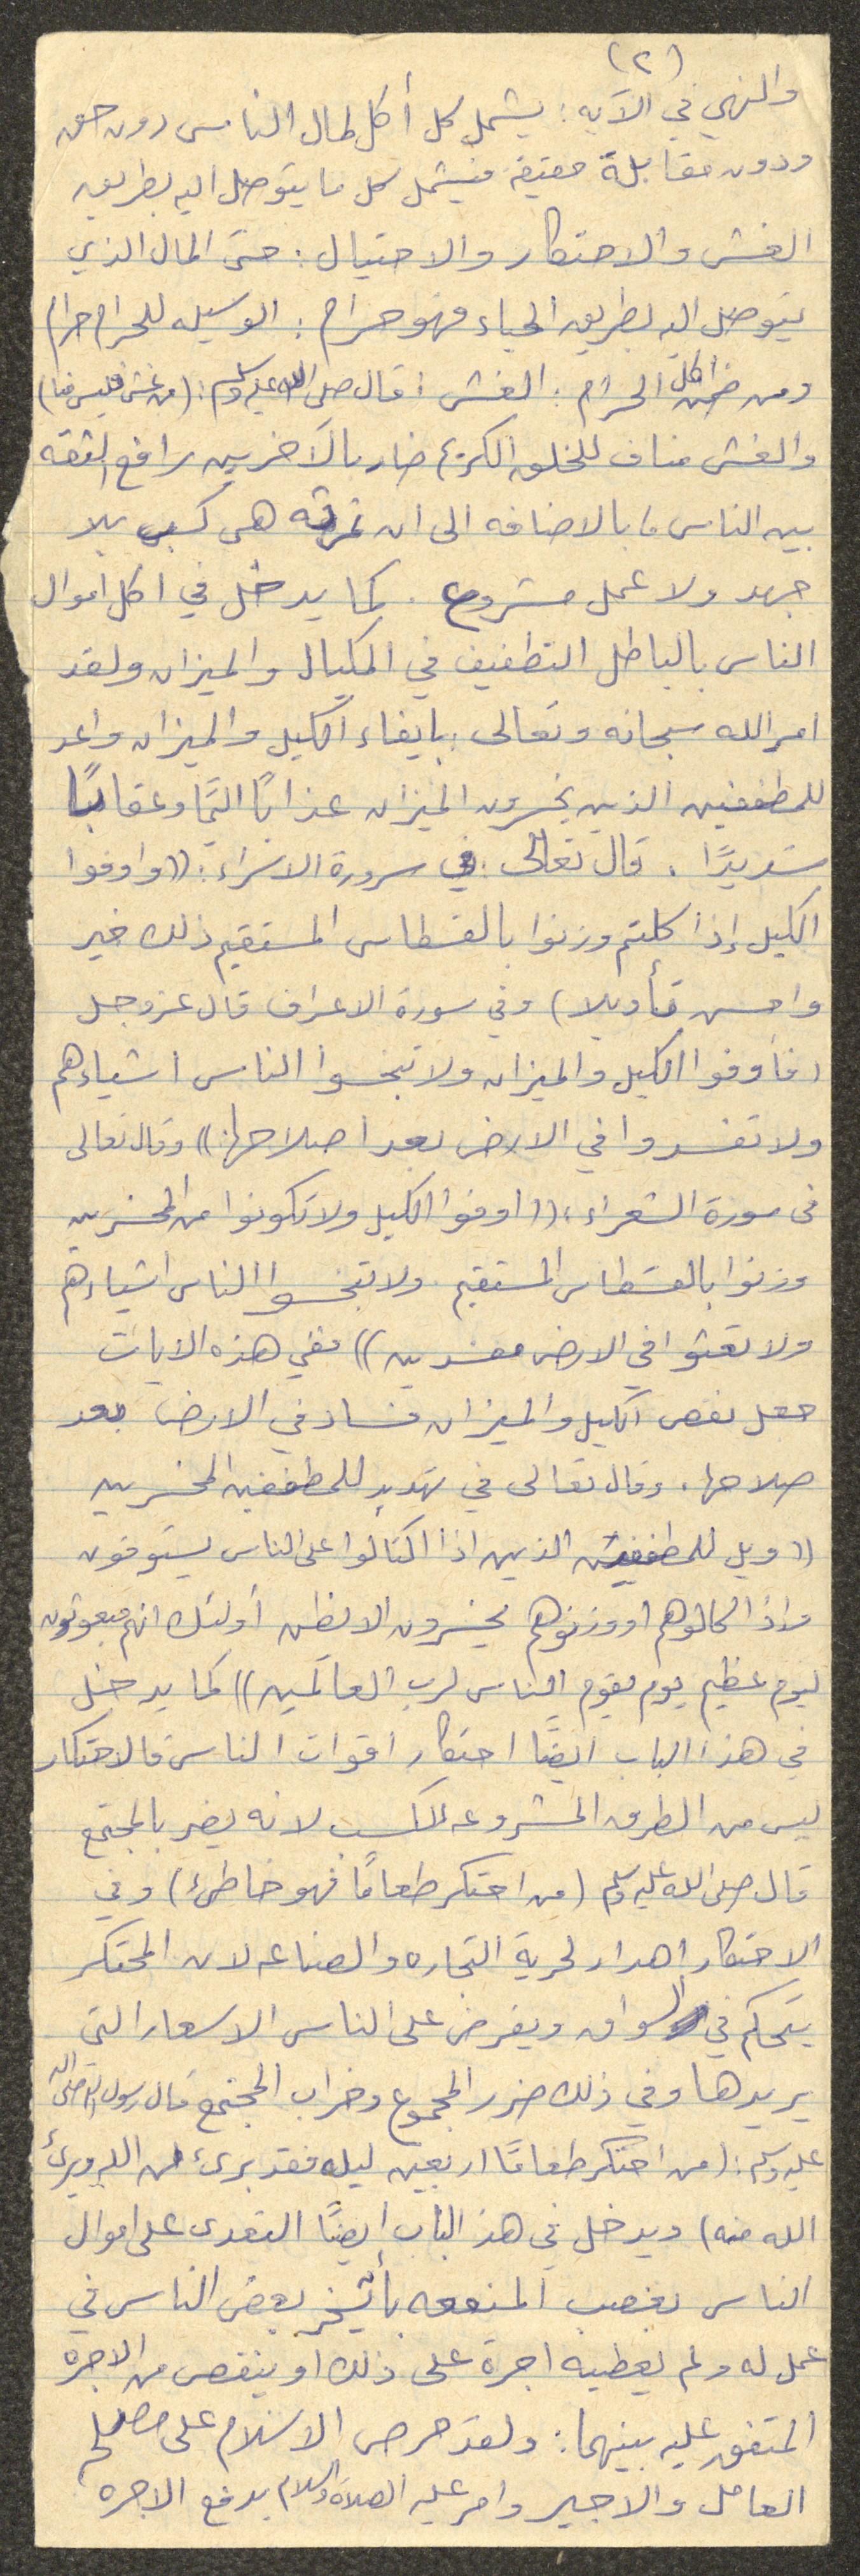 (٢)
والنهي في الآيه: يشمل كل أكل لمال الناس دون حق
ودون مقابلة حقيقه فيشمل كل ما يتوصل اليه بطريق
الغش والاحتكار والاحتيال: حتى المال الذي
يتوصل اليه بطريق الحياء فهو حرام: الوسيله للحرام حرام
ومن ضمن اكل الحرام: الغش: قال صلى الله عليه وسلم: (من غش فليس منا)
والغش مناف للخلق الكريم ضار بالآخرين رافع لثقه
بين الناس، بالاضافه الى ان ثمرته هى كسب بلا
جهد ولا عمل مشروع. كما يدخل في اكل اموال
الناس بالباطل التطفيف في المكيال والميزان ولقد
امر الله سبحانه وتعالى بايفاء الكيل والميزان واعد
للمطففين الذين يخسرون الميزان عذابًا اليمًا وعقابًا
شديدًا. قال تعالى في سورة الاسراء: ((واوفوا
الكيل إذا كلتم وزنوا بالقسطاس المستقيم ذلك خير
واحسن تأويلا) وفي سورة الاعراف قال عز وجل
(فأوفوا الكيل والميزان ولا تبخسوا الناس اشياءهم
ولا تفسدوا في الارض بعد اصلاحها)) وقال تعالى
فى سورة الشعراء: ((اوفوا الكيل ولا تكونوا من المخسرين
وزنوا بالقسطاس المستقيم ولا تبخسوا الناس اشياءهم
ولا تعثوا في الارض مفسدين)) ففي هذه الايات
جعل نقص الكيل والميزان فساد في الارض بعد
صلاحها. وقال تعالى في تهديد للمطففين المخسرين
((ويل للمطففين الذين اذا اكتالوا على الناس يستوفون
واذا كالوهم او وزنوهم يخسرون الا يظن أولئك انهم مبعوثون
ليوم عظيم يوم يقوم الناس لرب العالمين)) كما يدخل
في هذا الباب ايضًا احتكار اقوات الناس فالاحتكار
ليس من الطرق المشروعه للكسب لانه يضر بالمجتمع
قال صلى الله عليه وسلم (من احتكر طعامًا فهو خاطئ) وفي
الاحتكار اهدار لحرية التجاره والصناعه لان المحتكر
يتحكم في السواق ويفرض على الناس الاسعار التى
يريدها وفي ذلك ضرر المجموع وخراب المجتمع قال رسول الله صلى الله
عليه وسلم: (من احتكر طعامًا اربعين ليله فقد برئ من الله وبرئ
الله منه) ويدخل في هذ الباب ايضًا التعدى على اموال
الناس بغصب المنفعه بأن يسخر بعض الناس في
عمل له ولم يعطيه اجرة على ذلك او ينقص من الاجره
المتفق عليه بينهما: ولقد حرص الاسلام على
العامل والاجير وامر عليه الصلاة والسلام بدفع الاجره